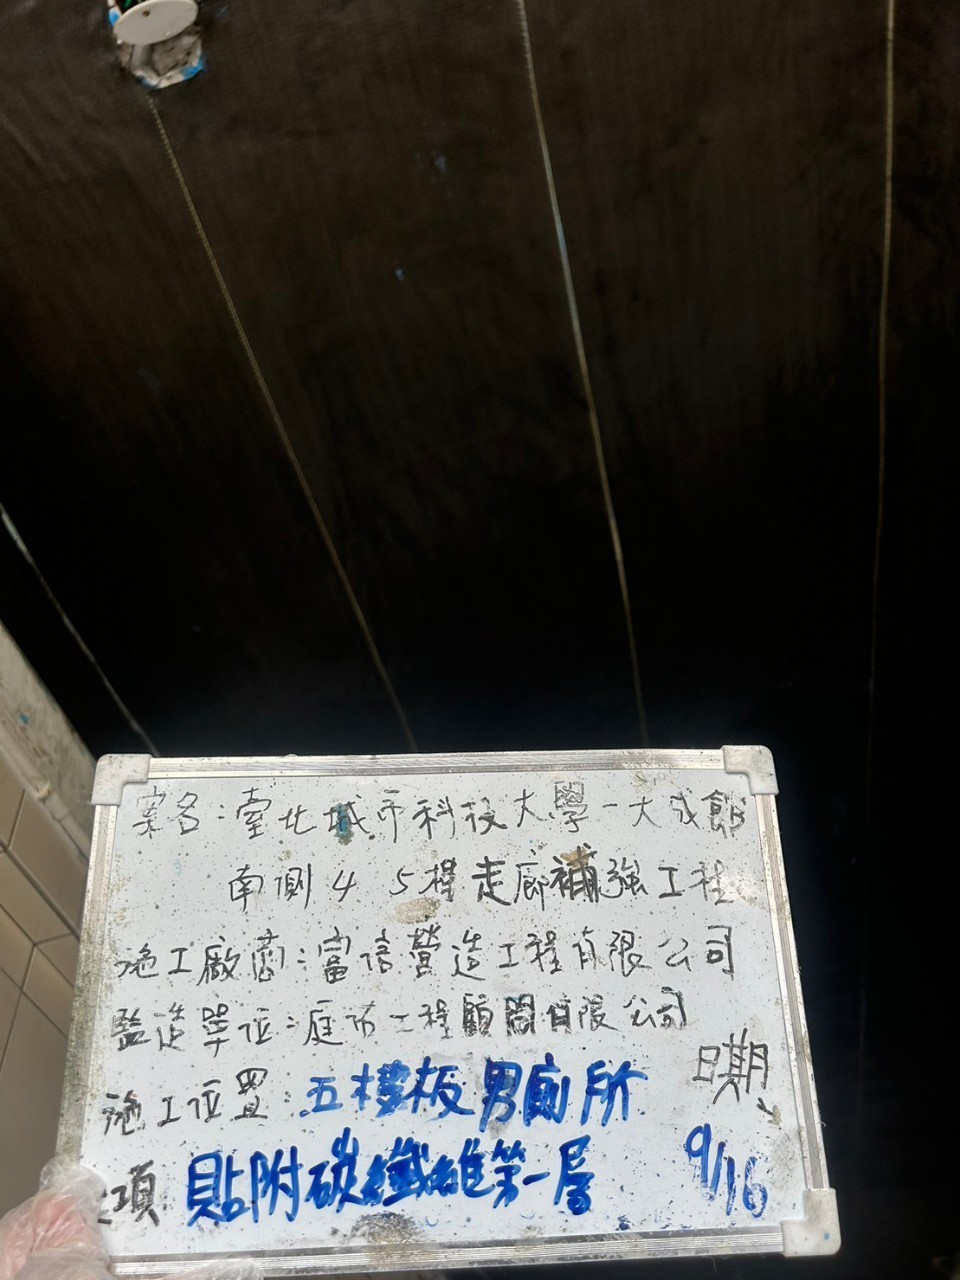 案名:臺北城市科技大學-大成館
南側4 5樓走廊補強工程
施工廠商:富信營造工程有限公司
監造單位:庭 工程顧問有限公司
日期、
施工位置:五樓板男廁所
9/16
項 貼附碳纖維第一層